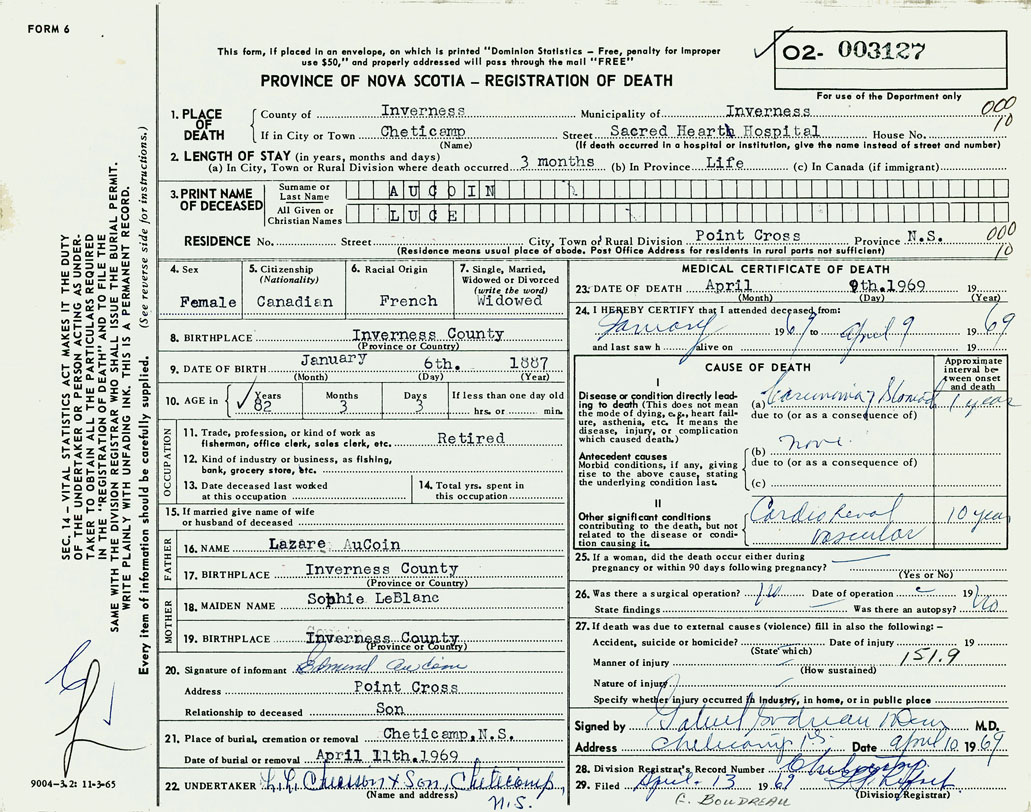 FORM 6
This form, if placed in an envelope, on which is printed "Dominion Statistics – Free, penalty for improper
use $50," and properly addressed will pass through the mail "FREE"
O2- 003127
PROVINCE OF NOVA SCOTIA – REGISTRATION OF DEATH
For use of the Department only
1. PLACE OF DEATH
County of Inverness Municipality of Inverness 000
If in City or Town Cheticamp Street Sacred Hearth Hospital House No. 10
(Name) (If death occurred in a hospital or institution, give the name instead of street and number)
2. LENGTH OF STAY (in years, months and days)
(a) In City, Town or Rural Division where death occurred 3 months (b) In Province Life (c) In Canada (if immigrant)
3. PRINT NAME OF DECEASED
Surname or Last Name AUCOIN
All Given or Christian Names LUCE
RESIDENCE No. Street City, Town or Rural Division Point Cross Province N.S. 000
(Residence means usual place of abode. Post Office Address for residents in rural parts not sufficient) 10
4. Sex
Female
5. Citizenship
(Nationality)
Canadian
6. Racial Origin
French
7. Single, Married,
Widowed or Divorced
(write the word)
Widowed
8. BIRTHPLACE Inverness County
(Province or Country)
9. DATE OF BIRTH January 6th. 1887
(Month) (Day) (Year)
10. AGE in Years Months Days If less than one day old
82 3 3 hrs. or min.
OCCUPATION
11. Trade, profession, or kind of work as
fisherman, office clerk, sales clerk, etc. Retired
12. Kind of industry or business, as fishing,
bank, grocery store, etc.
13. Date deceased last worked
at this occupation
14. Total yrs. spent in
this occupation
15. If married give name of wife
or husband of deceased
FATHER
16. NAME Lazare AuCoin
17. BIRTHPLACE Inverness County
(Province or Country)
MOTHER
18. MAIDEN NAME Sophie LeBlanc
19. BIRTHPLACE Inverness County
(Province or Country)
20. Signature of informant Edmund AuCoin
Address Point Cross
Relationship to deceased Son
21. Place of burial, cremation or removal Cheticamp,N.S.
Date of burial or removal April 11th.1969
22. UNDERTAKER & Son, Cheticamp,
(Name and address) N.S.
MEDICAL CERTIFICATE OF DEATH
23. DATE OF DEATH April 9th.1969 19
(Month) (Day) (Year)
24. I HEREBY CERTIFY that I attended deceased from:
January 1969 to April 9 1969
and last saw h alive on 19
CAUSE OF DEATH
Approximate
interval be-
tween onset
and death
I
Disease or condition directly lead-
ing to death (This does not mean
the mode of dying, e.g., heart fail-
ure, asthenia, etc. It means the
disease, injury, or complication
which caused death.)
(a) Carcinoma of Stomach 1 year
due to (or as a consequence of)
Antecedent causes
Morbid conditions, if any, giving
rise to the above cause, stating
the underlying condition last.
(b) none.
due to (or as a consequence of)
(c)
II
Other significant conditions
contributing to the death, but not
related to the disease or condi-
tion causing it.
Cardio Renal 10 year
vascular
25. If a woman, did the death occur either during
pregnancy or within 90 days following pregnancy?
(Yes or No)
26. Was there a surgical operation? No Date of operation 19
State findings Was there an autopsy? No
27. If death was due to external causes (violence) fill in also the following: –
Accident, suicide or homicide? Date of injury 19
(State which)
Manner of injury 151.9
(How sustained)
Nature of injury
Specify whether injury occurred in industry, in home, or in public place
Signed by Gabriel Boudreau M.D.
Address Cheticamp N.S. Date April 10 1969
28. Division Registrar's Record Number
29. Filed April 13 1969
(Division Registrar)
E. BOUDREAU
SEC. 14 – VITAL STATISTICS ACT MAKES IT THE DUTY
OF THE UNDERTAKER OR PERSON ACTING AS UNDER-
TAKER TO OBTAIN ALL THE PARTICULARS REQUIRED
IN THE "REGISTRATION OF DEATH" AND TO FILE THE
SAME WITH THE DIVISION REGISTRAR WHO SHALL ISSUE THE BURIAL PERMIT.
WRITE PLAINLY WITH UNFADING INK. THIS IS A PERMANENT RECORD.
Every item of information should be carefully supplied. (See reverse side for instructions.)
9004-3.2: 11-3-65